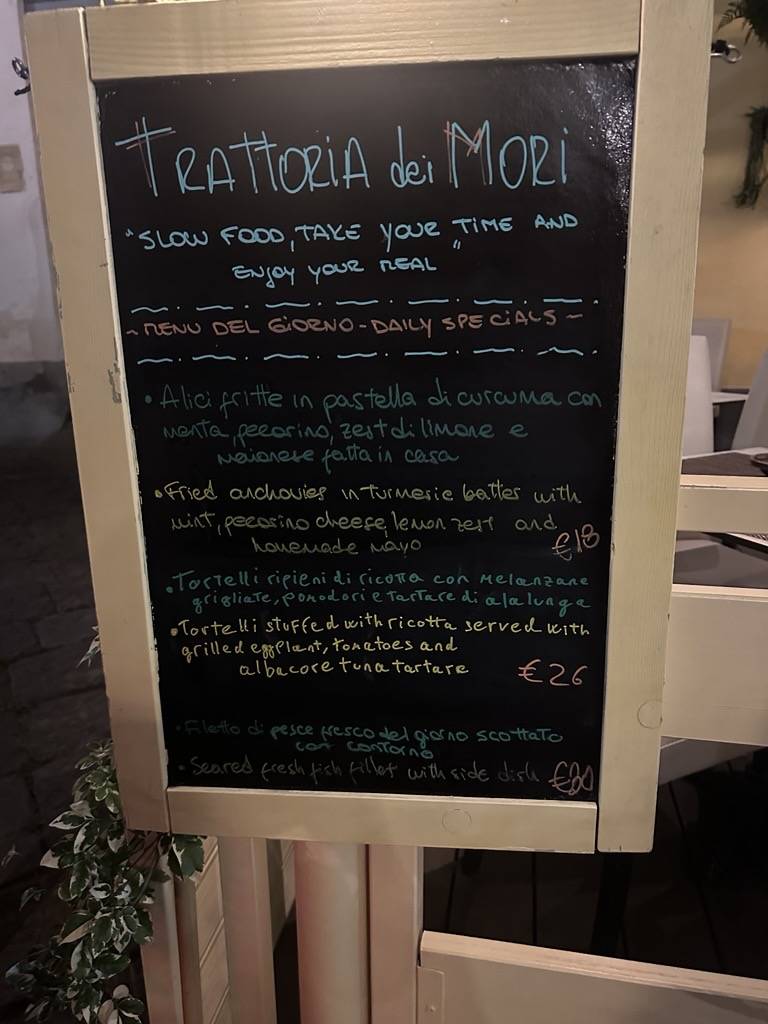 TRATTORIA dei MORI
"SLOW FOOD, TAKE YOUR TIME AND
ENJOY YOUR MEAL"
~MENU DEL GIORNO - DAILY SPECIALS~
• Alici fritte in pastella di curcuma con
menta, pecorino, zest di limone e
maionese fatta in casa
• Fried anchovies in turmeric batter with
mint, pecorino cheese, lemon zest and
homemade mayo €18
• Tortelli ripieni di ricotta con melanzane
grigliate, pomodori e tartare di alalunga
• Tortelli stuffed with ricotta served with
grilled eggplant, tomatoes and
albacore tuna tartare €26
• Filetto di pesce fresco del giorno scottato
con contorno
• Seared fresh fish fillet with side dish